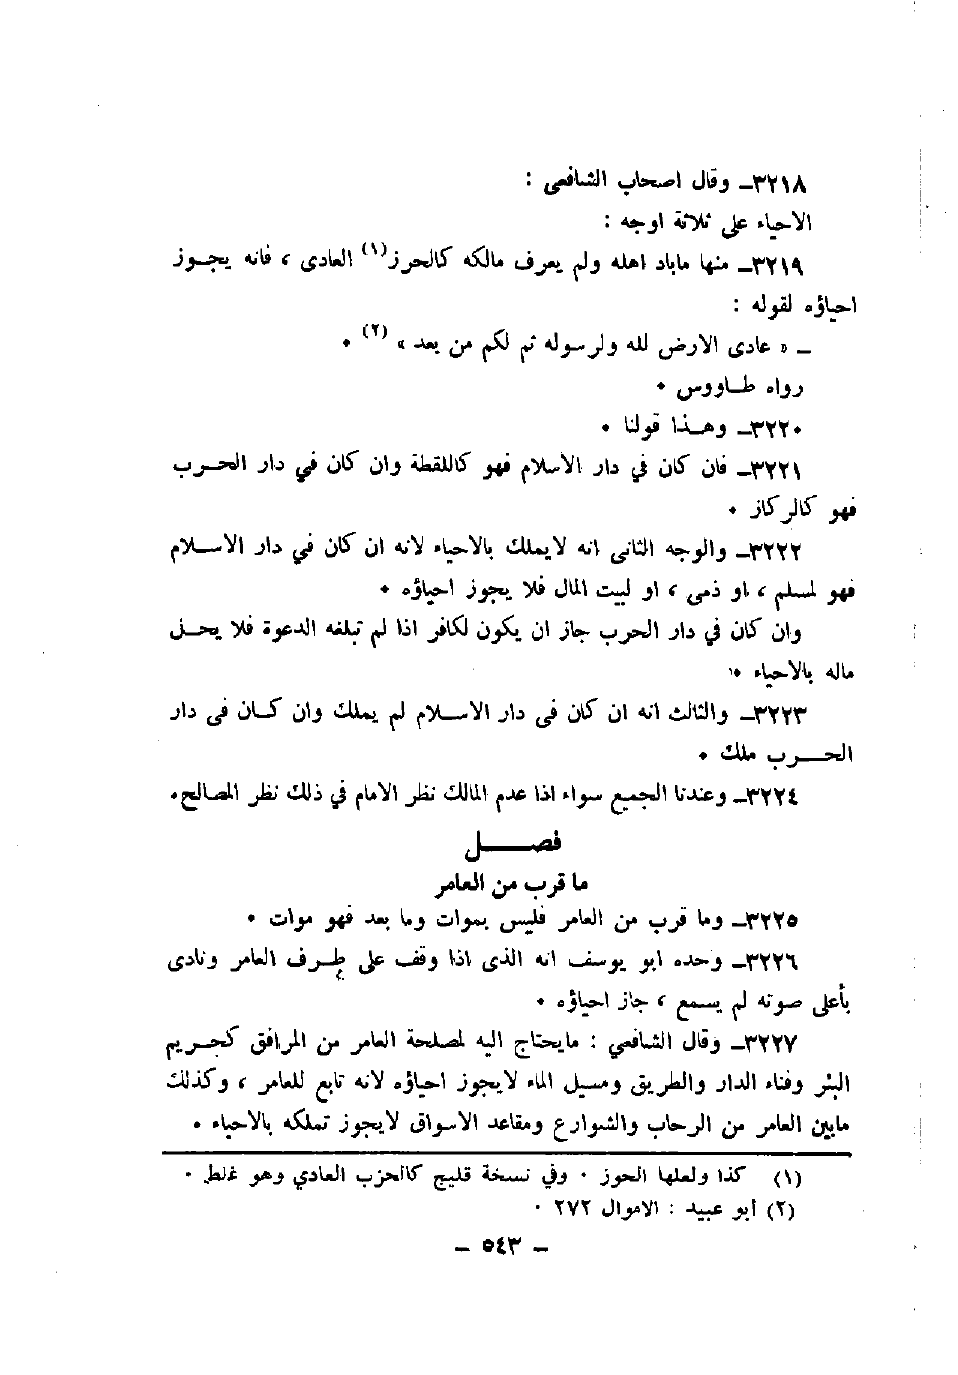 ٣٢١٨ــ وقال اصحاب الشافعى :
الاحياء على ثلاثة اوجه :
٣٢١٩ــ منها ماباد اهله ولم يعرف مالكه كالحرز(١) العادى ، فانه يجـوز
احياؤه لقوله :
ــ « عادى الارض لله ولرسوله ثم لكم من بعد » (٢) ٠
رواه طـاووس ٠
٣٢٢٠ــ وهـذا قولنا ٠
٣٢٢١ــ فان كان في دار الاسلام فهو كاللقطة وان كان في دار الحـرب
فهو كالركاز ٠
٣٢٢٢ــ والوجه الثانى انه لايملك بالاحياء لانه ان كان في دار الاسـلام
فهو لمسلم ، او ذمى ، او لبيت المال فلا يجوز احياؤه ٠
وان كان في دار الحرب جاز ان يكون لكافر اذا لم تبلغه الدعوة فلا يحـل
ماله بالاحياء ٠
٣٢٢٣ــ والثالث انه ان كان فى دار الاسـلام لم يملك وان كـان فى دار
الحــرب ملك ٠
٣٢٢٤ــ وعندنا الجميع سواء اذا عدم المالك نظر الامام في ذلك نظر المصالح٠
فصـــل
ما قرب من العامر
٣٢٢٥ــ وما قرب من العامر فليس بموات وما بعد فهو موات ٠
٣٢٢٦ــ وحده ابو يوسف انه الذى اذا وقف على طـرف العامر ونادى
بأعلى صوته لم يسمع ، جاز احياؤه ٠
٣٢٢٧ــ وقال الشافعي : مايحتاج اليه لمصلحة العامر من المرافق كحـريم
البئر وفناء الدار والطريق ومسيل الماء لايجوز احياؤه لانه تابع للعامر ، وكذلك
مابين العامر من الرحاب والشوارع ومقاعد الاسواق لايجوز تملكه بالاحياء ٠
(١) كذا ولعلها الحوز ٠ وفي نسخة قليج كالحزب العادي وهو غلط ٠
(٢) أبو عبيد : الاموال ٢٧٢ ٠
ــ ٥٤٣ ــ